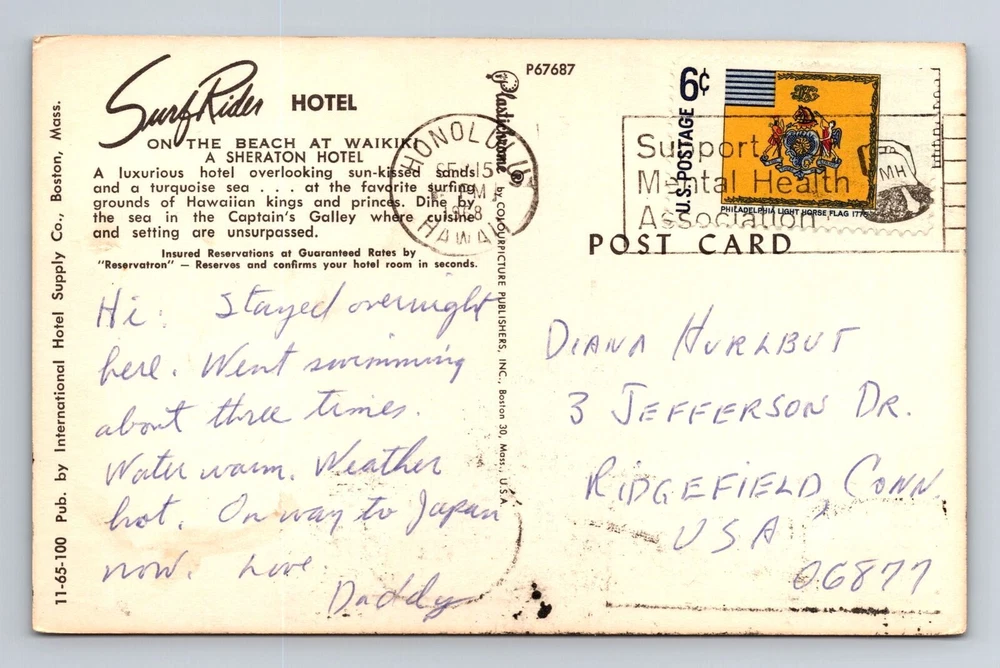 Surf Rider HOTEL
ON THE BEACH AT WAIKIKI
A SHERATON HOTEL
A luxurious hotel overlooking sun-kissed sands
and a turquoise sea . . . at the favorite surfing
grounds of Hawaiian kings and princes. Dine by
the sea in the Captain's Galley where cuisine
and setting are unsurpassed.
Insured Reservations at Guaranteed Rates by
"Reservatron" — Reserves and confirms your hotel room in seconds.
Hi: Stayed overnight
here. Went swimming
about three times.
Water warm. Weather
hot. On way to Japan
now. Love
Daddy
11-65-100 Pub. by International Hotel Supply Co., Boston, Mass.
Plastichrome® by COLOURPICTURE PUBLISHERS, INC., Boston 30, Mass., U.S.A.
P67687
HONOLULU
15
PM
HAWAII
6¢
U.S. POSTAGE
PHILADELPHIA LIGHT HORSE FLAG 1775
Support
Mental Health
Association
MH
POST CARD
DIANA HURLBUT
3 JEFFERSON DR.
RIDGEFIELD, CONN.
USA
06877